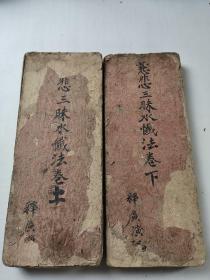 悲三昧水懺法卷上
釋廣
慈悲三昧水懺法卷下
釋廣